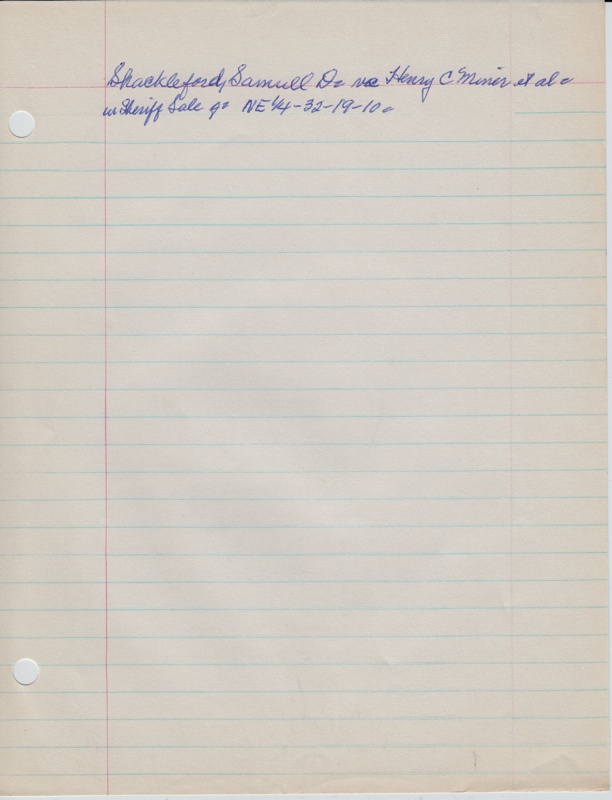 Shackleford, Samuel D. vs Henry C Miner et al.
in Sheriff Sale 9. NE 1/4-32-19-10.